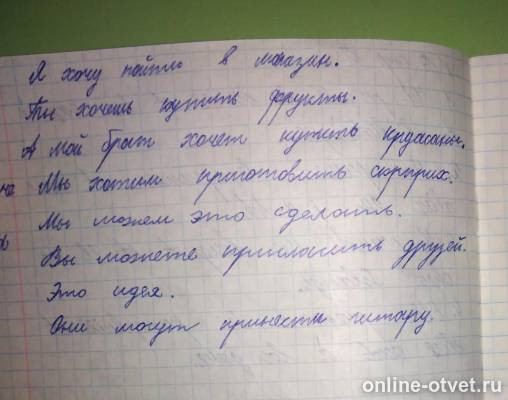 Я хочу пойти в магазин.
Ты хочешь купить фрукты.
А мой брат хочет купить круасаны.
Мы хотим приготовить сюрприз.
Мы можем это сделать.
Вы можете пригласить друзей.
Это идея.
Они могут принести гитару.
online-otvet.ru